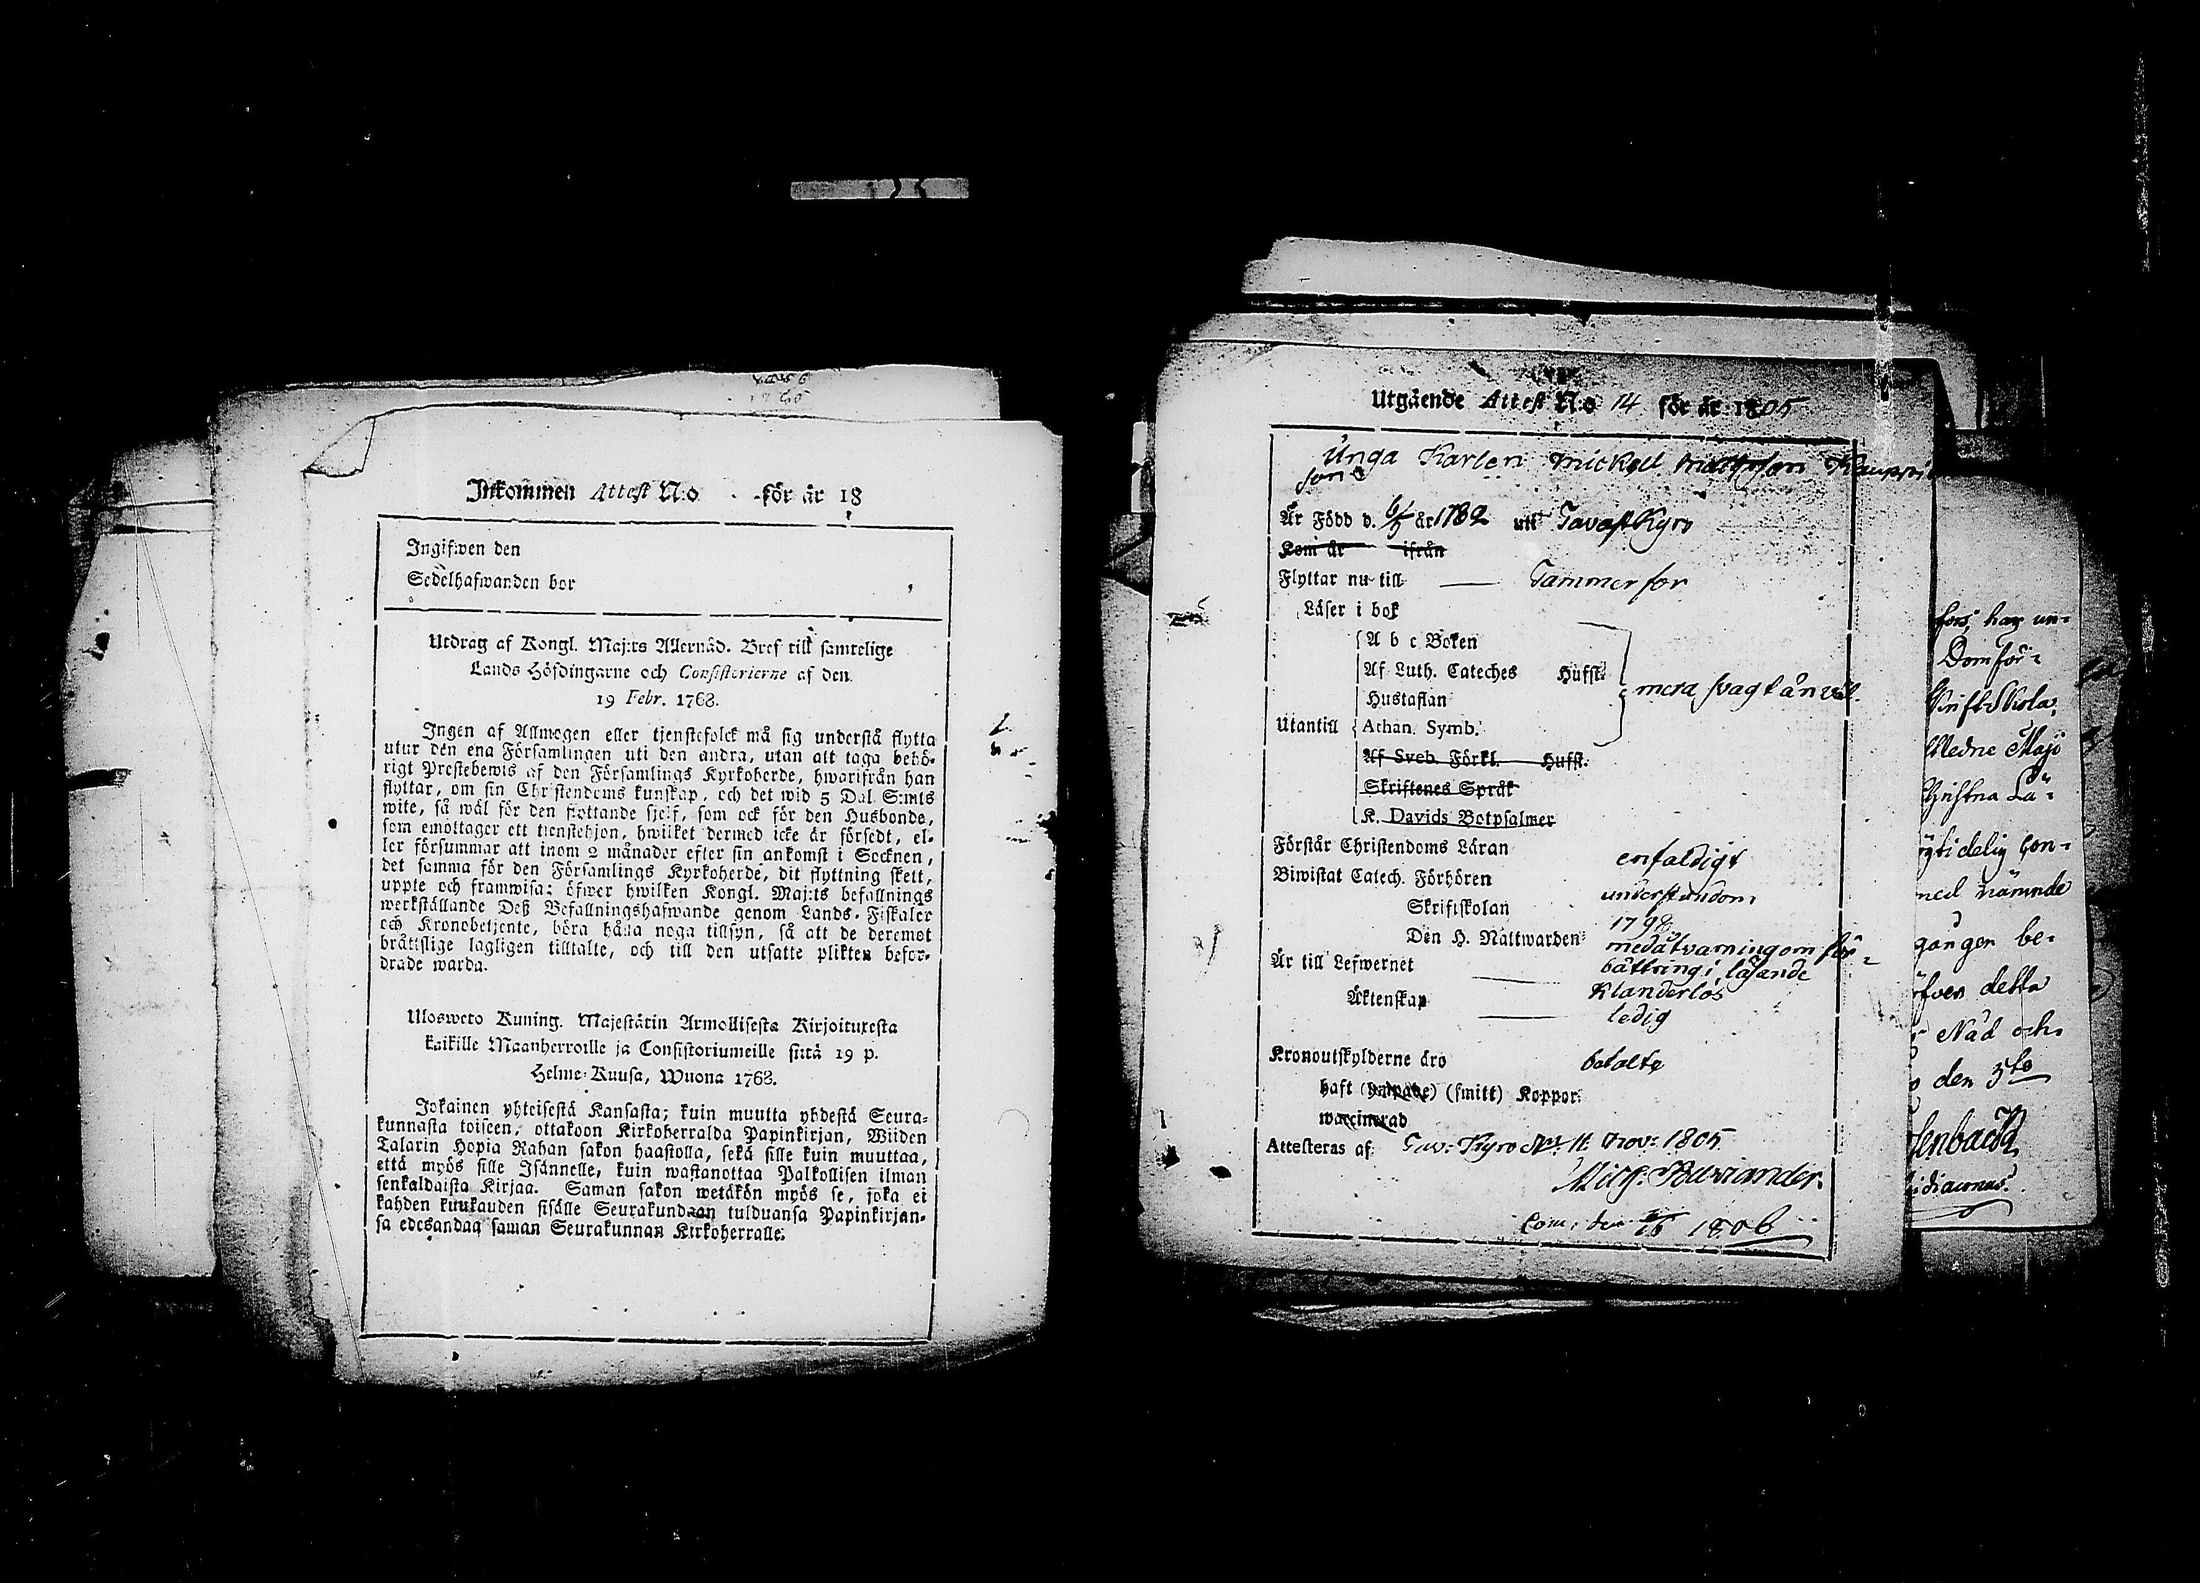 Inkommen Attest N:o för år 18
Ingifwen den
Sedelhafwanden bor
Utdrag af Kongl. Maj:ts Allernåd. Bref till samtelige
Lands Höfdingarne och Consistorierne af den
19 Febr. 1768.
Ingen af Allmogen eller tjenstefolck må sig understå flytta
utur den ena Församlingen uti den andra, utan att taga behö-
rigt Prestebewis af den Församlings Kyrkoherde, hwarifrån han
flyttar, om sin Christendoms kunskap, och det wid 5 Dal. S:mts
wite, så wäl för den flyttande sjelf, som ock för den Husbonde,
som emottager ett tienstehjon, hwilket dermed icke är försedt, el-
ler försummar att inom 2 månader efter sin ankomst i Socknen,
det samma för den Församlings Kyrkoherde, dit flyttning skett,
uppte och framwisa: öfwer hwilken Kongl. Maj:ts befallnings
werkställande Deß Befallningshafwande genom Lands-Fiskaler
och Kronobetjente, böra hålla noga tillsyn, så att de deremot
bråttslige lagligen tilltalte, och till den utsatte plikten befor-
drade warda.
Ulosweto Kuning. Majestätin Armollisesta Kirjoituxesta
kaikille Maanherroille ja Consistoriumeille siitä 19 p.
Helme-Kuusa, Wuona 1768.
Jokainen yhteisestä Kansasta; kuin muutta yhdestä Seura-
kunnasta toiseen, ottakoon Kirkoherralda Papinkirjan, Wiiden
Talarin Hopia Rahan sakon haastolla, sekä sille kuin muuttaa,
että myös sille Isännelle, kuin wastanottaa Palkollisen ilman
senkaldaista Kirjaa. Saman sakon wetäkön myös se, joka ei
kahden kuukauden sisälle Seurakundaan tulduansa Papinkirjan-
sa edesandaa saman Seurakunnan Kirkoherralle.
Utgående Attest N:o 14 för år 1805
Unga Karlen Mickell Mattsson Kauppi
son
Är Född d. 6/5 år 1782 uti TavastKyro
Kom år ifrån
Flyttar nu till Tammerfor
Läser i bok
A b c Boken
Af Luth. Cateches Hufst.
Hustaflan
mera svagt än väl.
Utantill Athan. Symb.
Af Sveb. Förkl. Hufst.
Skriftenes Språk
K. Davids Botpsalmer
Förstår Christendoms Läran enfaldigt
Biwistat Catech. Förhören understundom
Skriftskolan 1798
Den H. Nattwarden med åtvarning om för-
bättring i läsande
Är till Lefwernet Klanderlös
Äktenskap ledig
Kronoutskylderne äro betalte
haft (smitt) Koppor.
waccinerad
Attesteras af Tav: Kyro d. 11. Nov: 1805
1806
fors, har un-
Dom för-
Medne Majo
Christna Lä-
med nämnde
gången be-
detta
Nåd och
den 5te